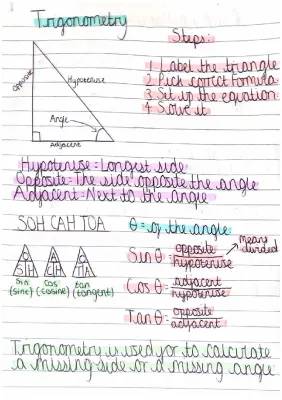 Trigonometry
Steps:
1 Label the triangle
2 Pick correct Formula
3 Set up the equation
4 Solve it
Opposite
Hypotenuse
Angle
Adjacent
Hypotenuse = Longest side
Opposite = The side opposite the angle
Adjacent = Next to the angle
SOH CAH TOA
θ = of the angle
Means divided
Sin θ = opposite / hypotenuse
O S H
A C H
O T A
Sin (sine)
cos (cosine)
tan (tangent)
Cos θ = adjacent / hypotenuse
Tan θ = opposite / adjacent
Trigonometry is used for to calculate
a missing side or a missing angle